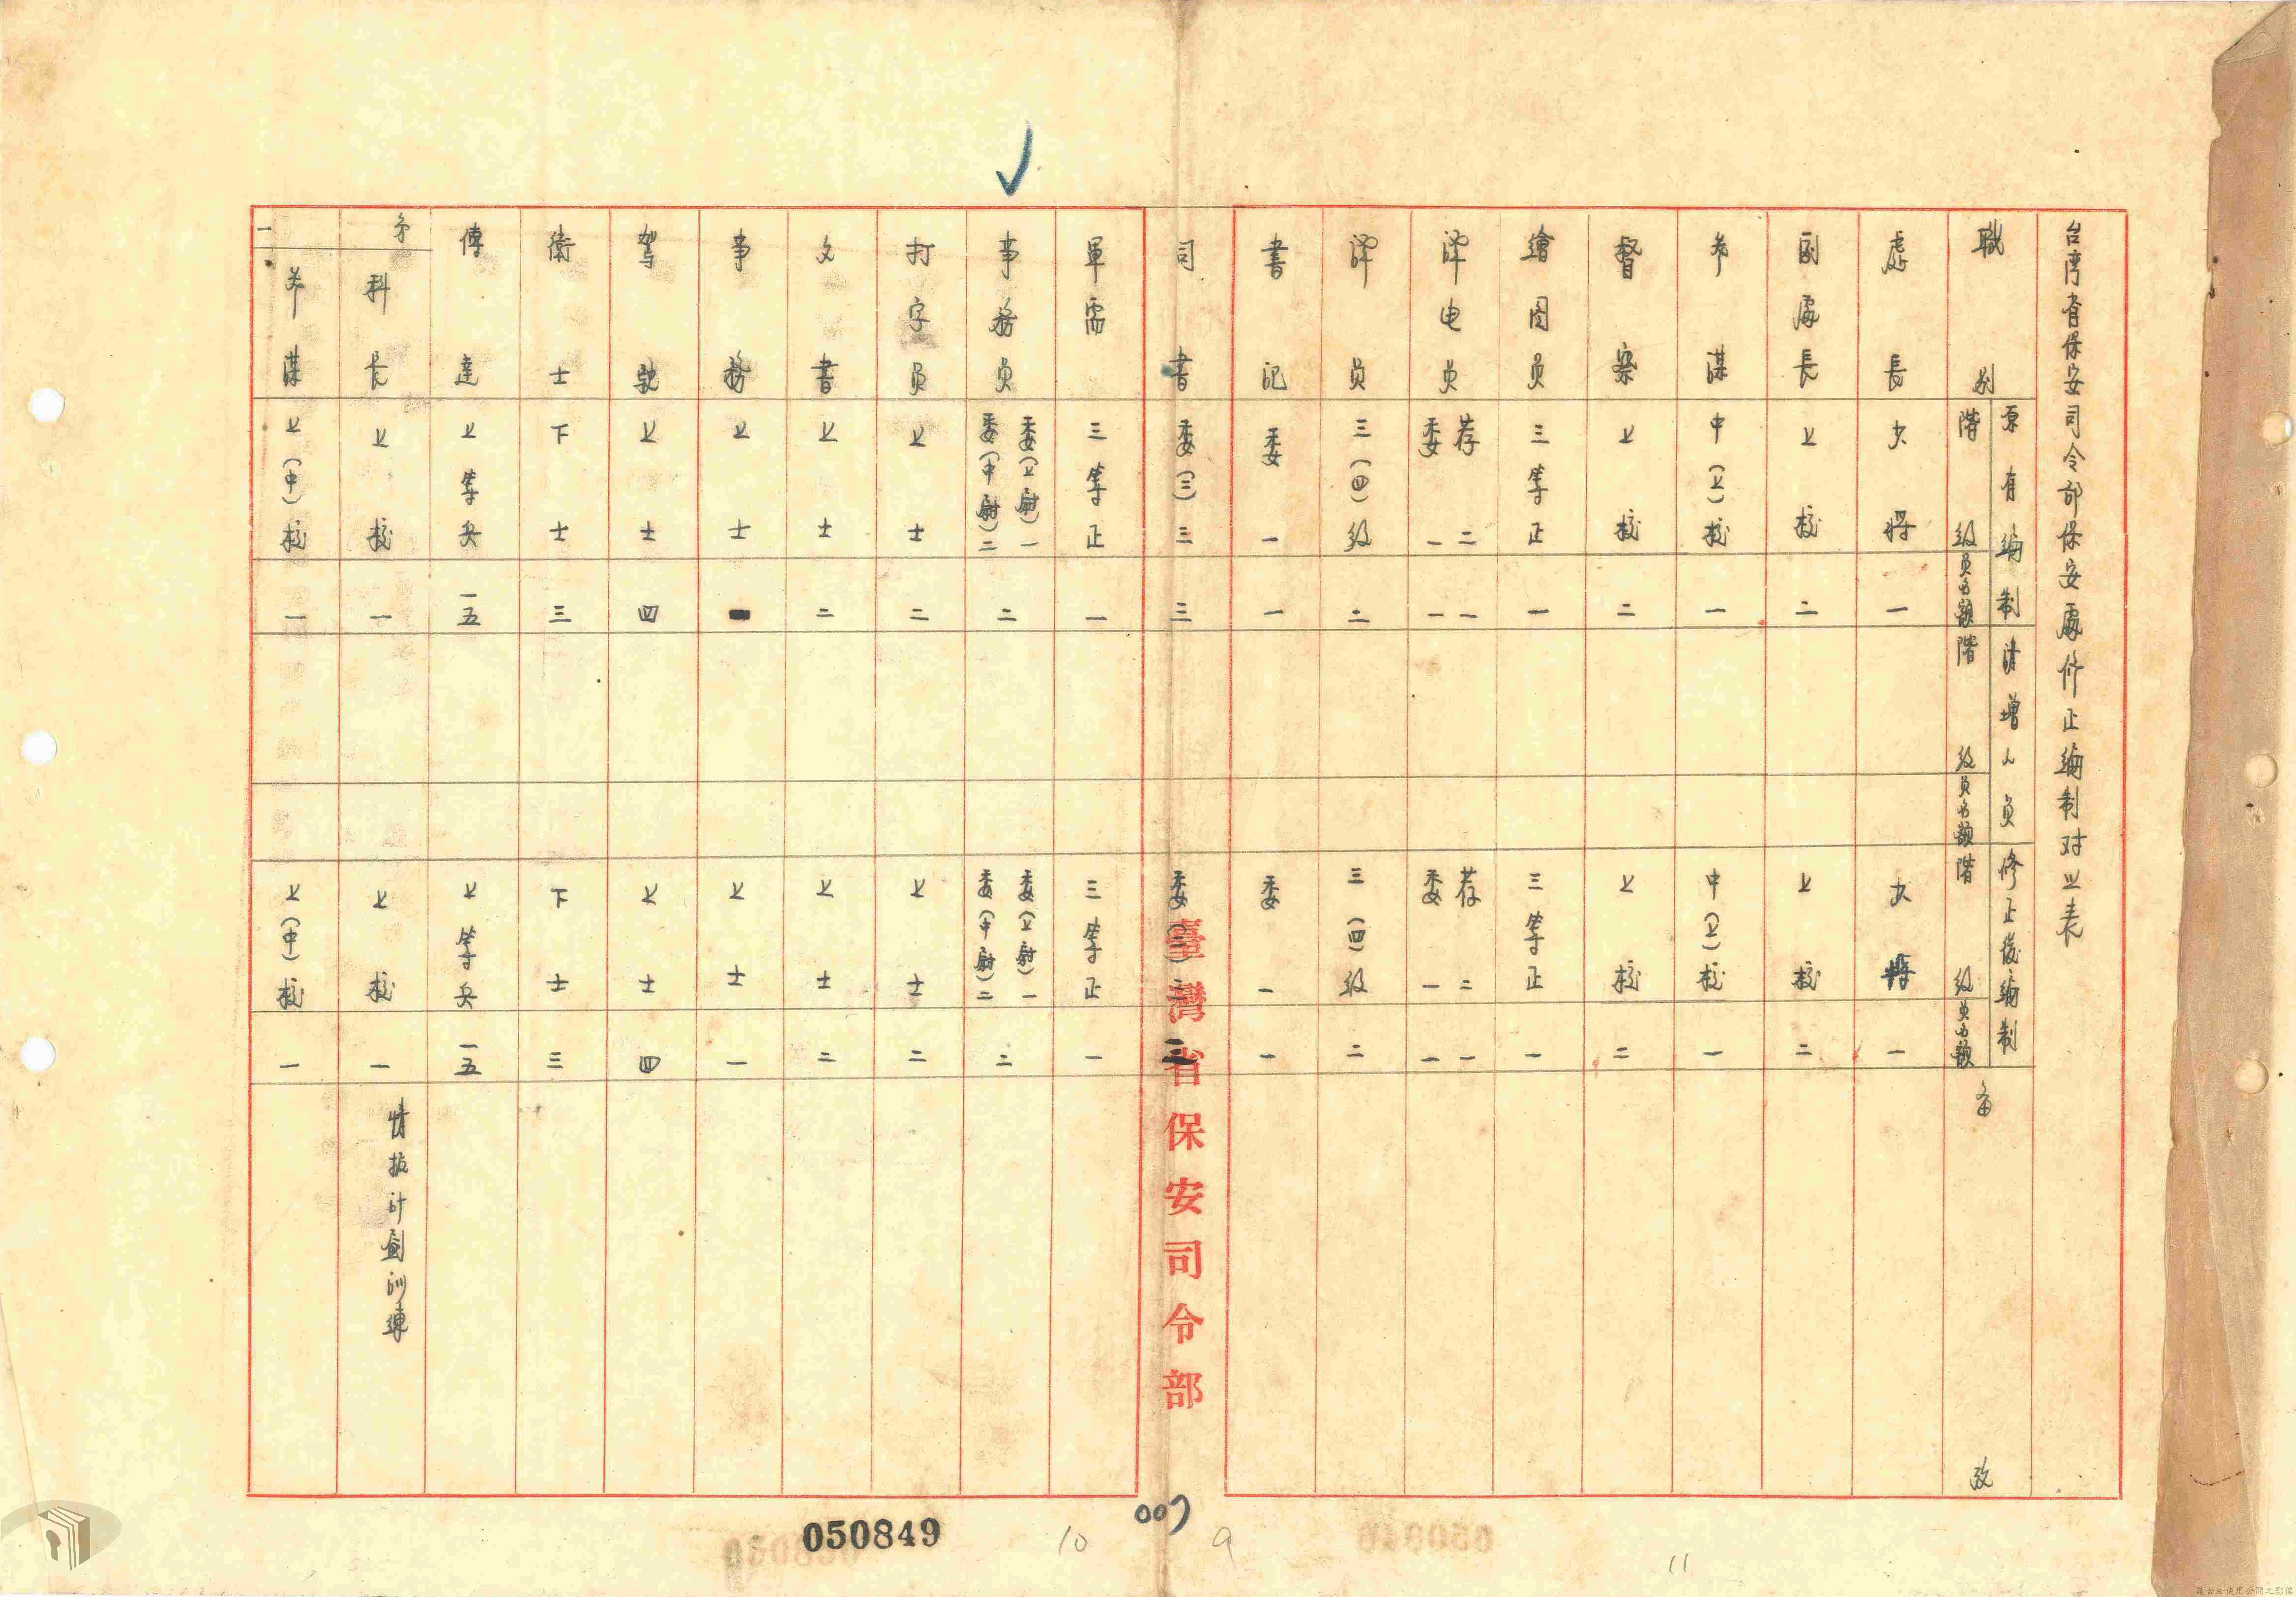 台湾省保安司令部保安處修正編制对照表
職別
原有編制 階級 員名額
請增人員 階級 員名額
修正後編制 階級 員名額
备攷
處長 少將 一 少將 一
副處長 上校 二 上校 二
参謀 中(上)校 一 中(上)校 一
督察 上校 二 上校 二
繪图員 三等正 一 三等正 一
譯电員 荐二 委一 一 一 荐二 委一 一 一
譯員 三(四)级 二 三(四)级 二
書記 委一 一 委一 一
司書 委(三)三 三 委(三)三 三
軍需 三等正 一 三等正 一
事務員 委(上尉)一 委(中尉)二 二 委(上尉)一 委(中尉)二 二
打字員 上士 二 上士 二
文書 上士 二 上士 二
事務 上士 一 上士 一
駕駛 上士 四 上士 四
衛士 下士 三 下士 三
傳達 上等兵 一五 上等兵 一五
第一
科長 上校 一 上校 一 情报计劃训練
参謀 上(中)校 一 上(中)校 一
臺灣省保安司令部
007
050849
10
9
11
請合法使用公開之影像